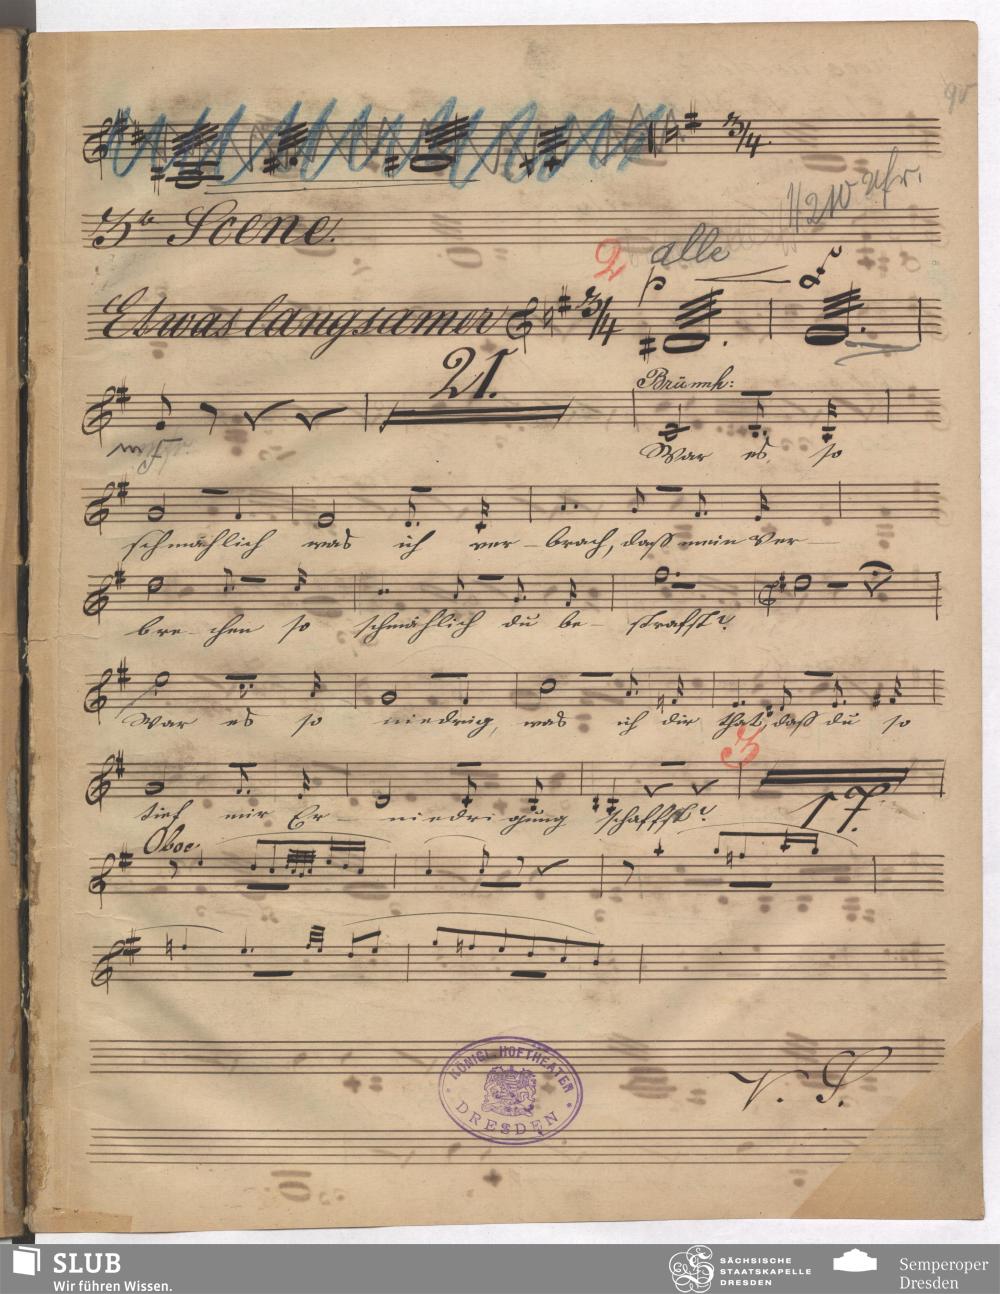 3te Scene.
2 alle
p
Etwas langsamer 3/4
21.
Brünnh:
mf
War es so
schmählich was ich ver - brach, daß mein Ver -
bre - chen so schmählich du be - strafst?
War es so niedrig, was ich dir that, daß du so
3
tief mir Er - niedrigung schaffst?
17.
Oboe.
KÖNIGL. HOFTHEATER
DRESDEN
V. S.
SLUB
Wir führen Wissen.
SÄCHSISCHE
STAATSKAPELLE
DRESDEN
Semperoper
Dresden